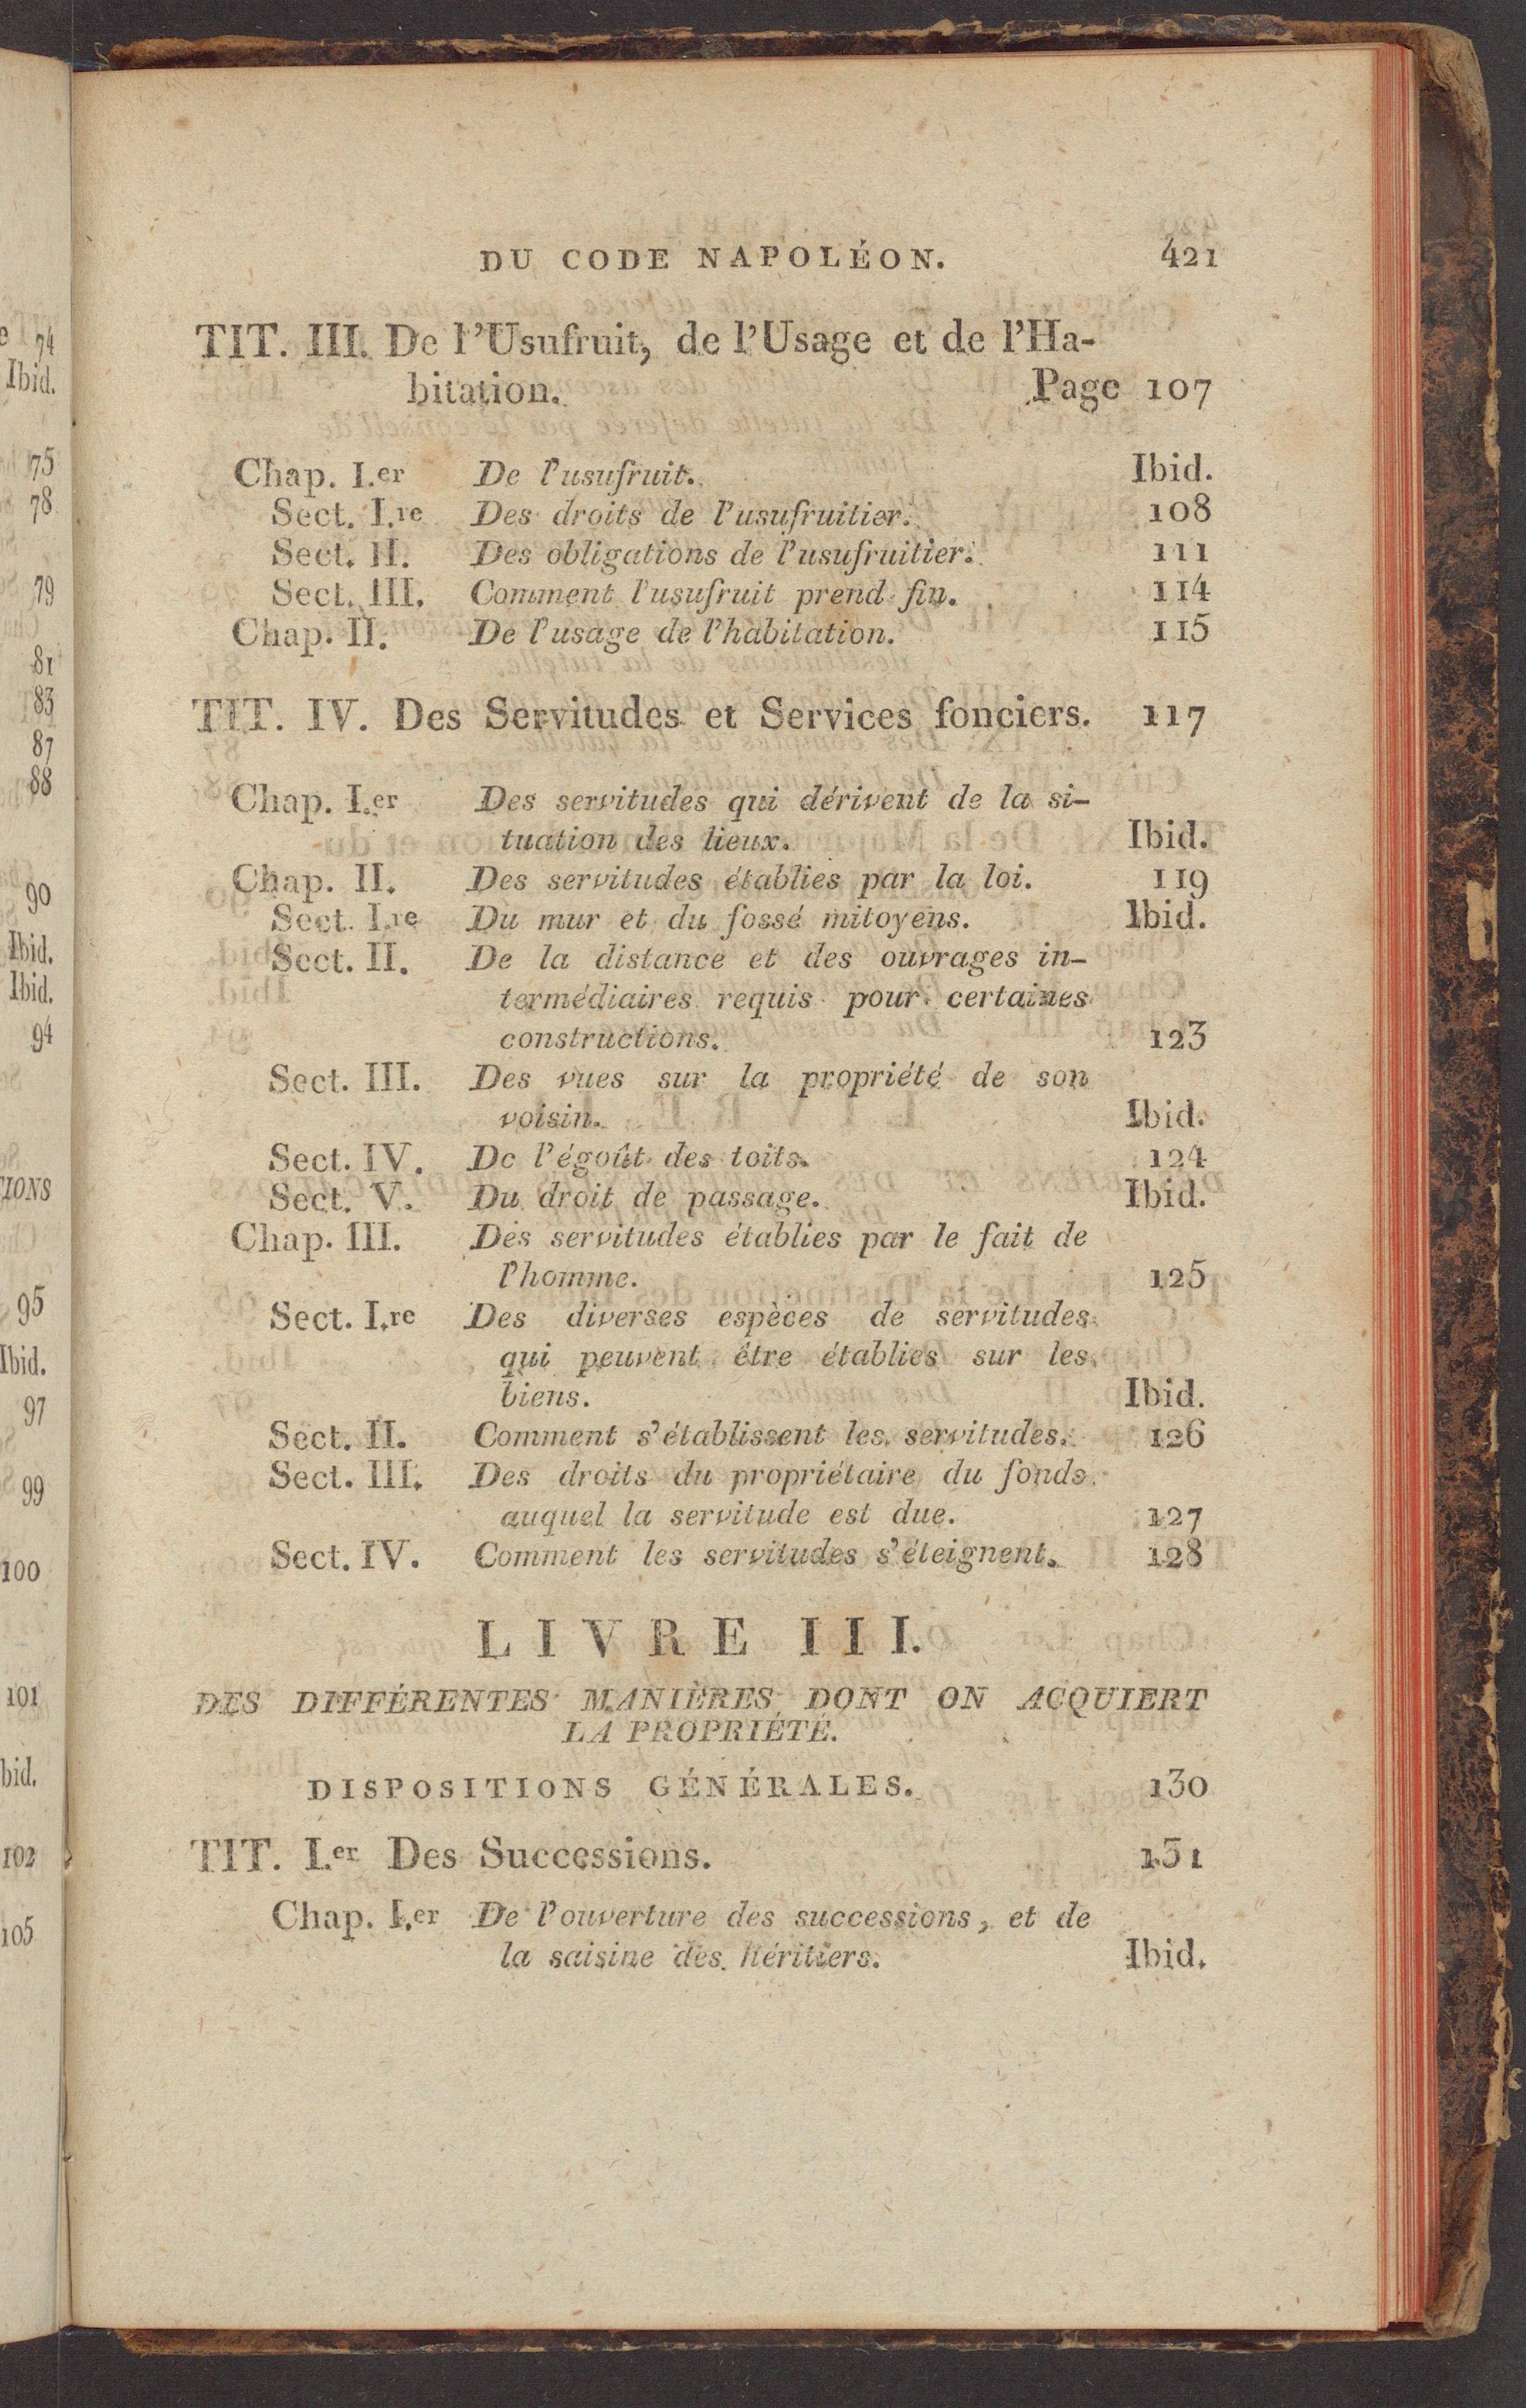 e 74
Ibid.
75
78
79
81
83
87
88
90
Ibid.
Ibid.
94
TIONS
95
Ibid.
97
99
100
101
bid.
102
105
DU CODE NAPOLÉON. 421
TIT. III. De l'Usufruit, de l'Usage et de l'Ha-
bitation. Page 107
Chap. I.er De l'usufruit. Ibid.
Sect. I.re Des droits de l'usufruitier. 108
Sect. II. Des obligations de l'usufruitier. 111
Sect. III. Comment l'usufruit prend fin. 114
Chap. II. De l'usage de l'habitation. 115
TIT. IV. Des Servitudes et Services fonciers. 117
Chap. I.er Des servitudes qui dérivent de la si-
tuation des lieux. Ibid.
Chap. II. Des servitudes établies par la loi. 119
Sect. I.re Du mur et du fossé mitoyens. Ibid.
Sect. II. De la distance et des ouvrages in-
termédiaires requis pour certaines
constructions. 123
Sect. III. Des vues sur la propriété de son
voisin. Ibid.
Sect. IV. De l'égoût des toits. 124
Sect. V. Du droit de passage. Ibid.
Chap. III. Des servitudes établies par le fait de
l'homme. 125
Sect. I.re Des diverses espèces de servitudes
qui peuvent être établies sur les
biens. Ibid.
Sect. II. Comment s'établissent les servitudes. 126
Sect. III. Des droits du propriétaire du fonds
auquel la servitude est due. 127
Sect. IV. Comment les servitudes s'éteignent. 128
LIVRE III.
DES DIFFÉRENTES MANIÈRES DONT ON ACQUIERT
LA PROPRIÉTÉ.
DISPOSITIONS GÉNÉRALES. 130
TIT. I.er Des Successions. 131
Chap. I.er De l'ouverture des successions, et de
la saisine des héritiers. Ibid.